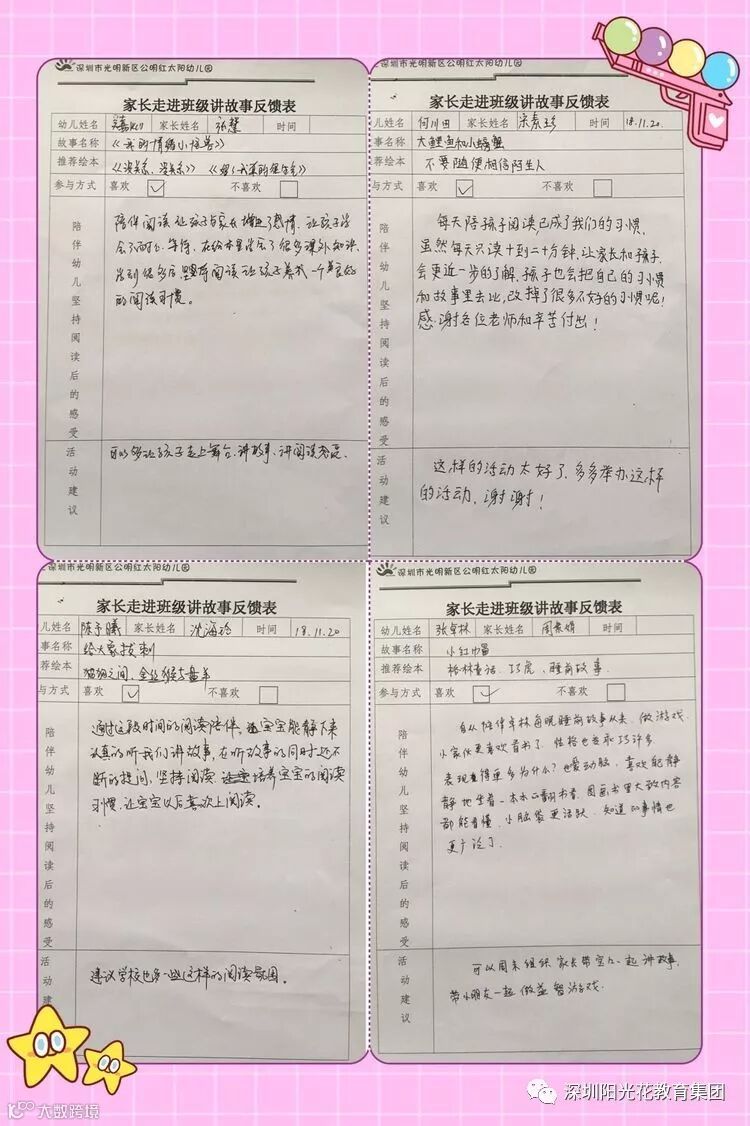 深圳市光明新区公明红太阳幼儿园
家长走进班级讲故事反馈表
幼儿姓名 家长姓名 张慧 时间
故事名称 《我的情绪小怪兽》
推荐绘本 《没关系、没关系》
参与方式 喜欢 ✓ 不喜欢
陪伴幼儿坚持阅读后的感受
陪伴阅读让孩子与家长增进了感情、让孩子学
会了耐心、等待、在绘本里学会了很多课外知识、
学到很多后、坚持阅读让孩子养成一个良好
的阅读习惯。
活动建议
可以多让孩子走上舞台、讲故事、讲阅读
深圳市光明新区公明红太阳幼儿园
家长走进班级讲故事反馈表
幼儿姓名 何川田 家长姓名 宋素珍 时间 18.11.20
故事名称 大鲤鱼和小螃蟹
推荐绘本 不要随便相信陌生人
参与方式 喜欢 ✓ 不喜欢
陪伴幼儿坚持阅读后的感受
每天陪孩子阅读,已成了我们的习惯,
虽然每天只读十到二十分钟,让家长和孩子
会更近一步的了解,孩子也会把自己的习惯
和故事里去比,改掉了很多不好的习惯呢!
感谢各位老师和辛苦付出!
活动建议
这样的活动太好了,多多举办这样
的活动,谢谢!
深圳市光明新区公明红太阳幼儿园
家长走进班级讲故事反馈表
儿姓名 陈予曦 家长姓名 沈海玲 时间 18.11.20
事名称 给大象拔刺
荐绘本 猫狗之间、金丝猴与盘羊
与方式 喜欢 ✓ 不喜欢
陪伴幼儿坚持阅读后的感受
通过这段时间的阅读陪伴,宝宝能静下来
认真的听我们讲故事,在听故事的同时还不
断的提问,坚持阅读培养宝宝的阅读
习惯,让宝宝以后喜欢上阅读。
活动建议
建议学校也多一些这样的阅读氛围。
深圳市光明新区公明红太阳幼儿园
家长走进班级讲故事反馈表
幼儿姓名 张卓林 家长姓名 周素娟 时间
故事名称 小红帽
推荐绘本 格林童话、巧虎、睡前故事
参与方式 喜欢 ✓ 不喜欢
陪伴幼儿坚持阅读后的感受
自从陪伴卓林每晚睡前故事以来、做游戏
小家伙更喜欢看书了、性格也差不巧许多
表现在得更多为什么?也爱动脑、喜欢能静
静地坐着一本本的翻书看、图画书里大致内容
都能看懂、小脑袋更活跃、知道的事情也
更广泛了。
活动建议
可以周末组织家长带宝宝一起讲故事、
带小朋友一起做益智游戏.
大数跨境
深圳阳光花教育集团